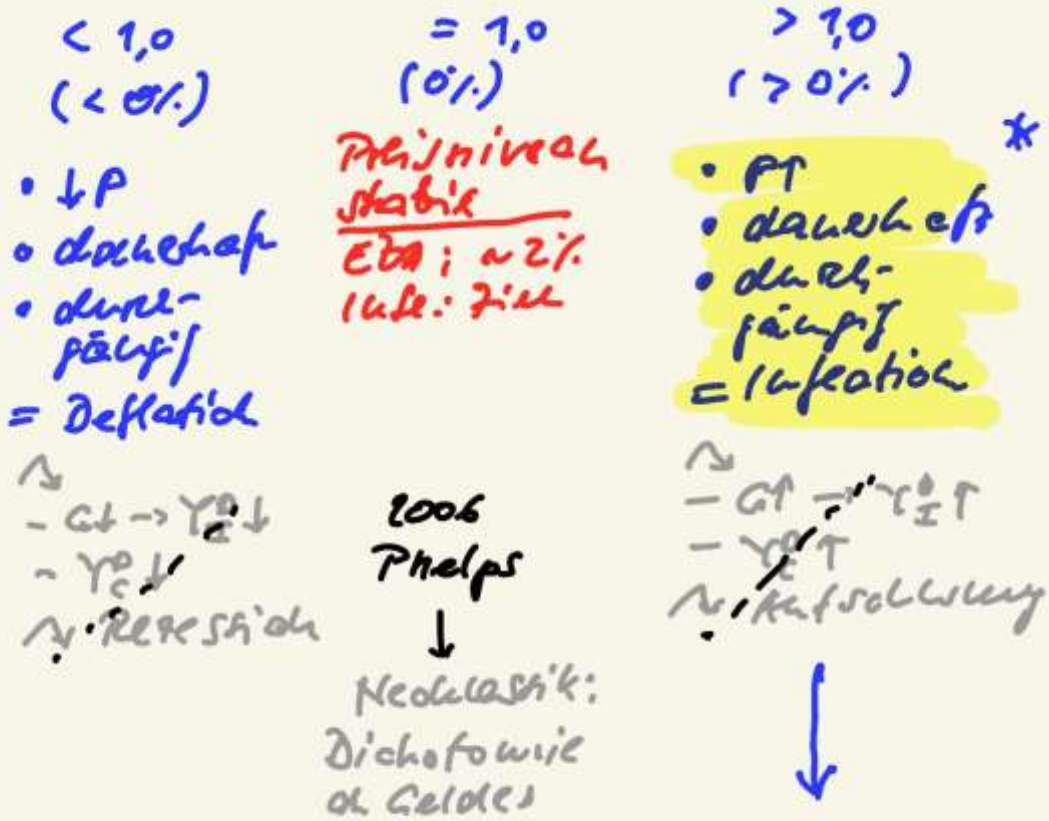 < 1,0
(< 0%)
• ↓P
• dauerhaft
• durch-
gängig
= Deflation
↷
- G↓ → Y_I^D ↓
- Y_C^D ↓
↷ Rezession
= 1,0
(0%)
Preisniveau
stabil
EZB: ~ 2%
Infl.: Ziel
2006
Phelps
↓
Neoklassik:
Dichotomie
d. Geldes
> 1,0
(> 0%)
*
• P↑
• dauerhaft
• durch-
gängig
= Inflation
↷
- G↑ → Y_I^D ↑
- Y_C^D ↑
↷ Aufschwung
↓